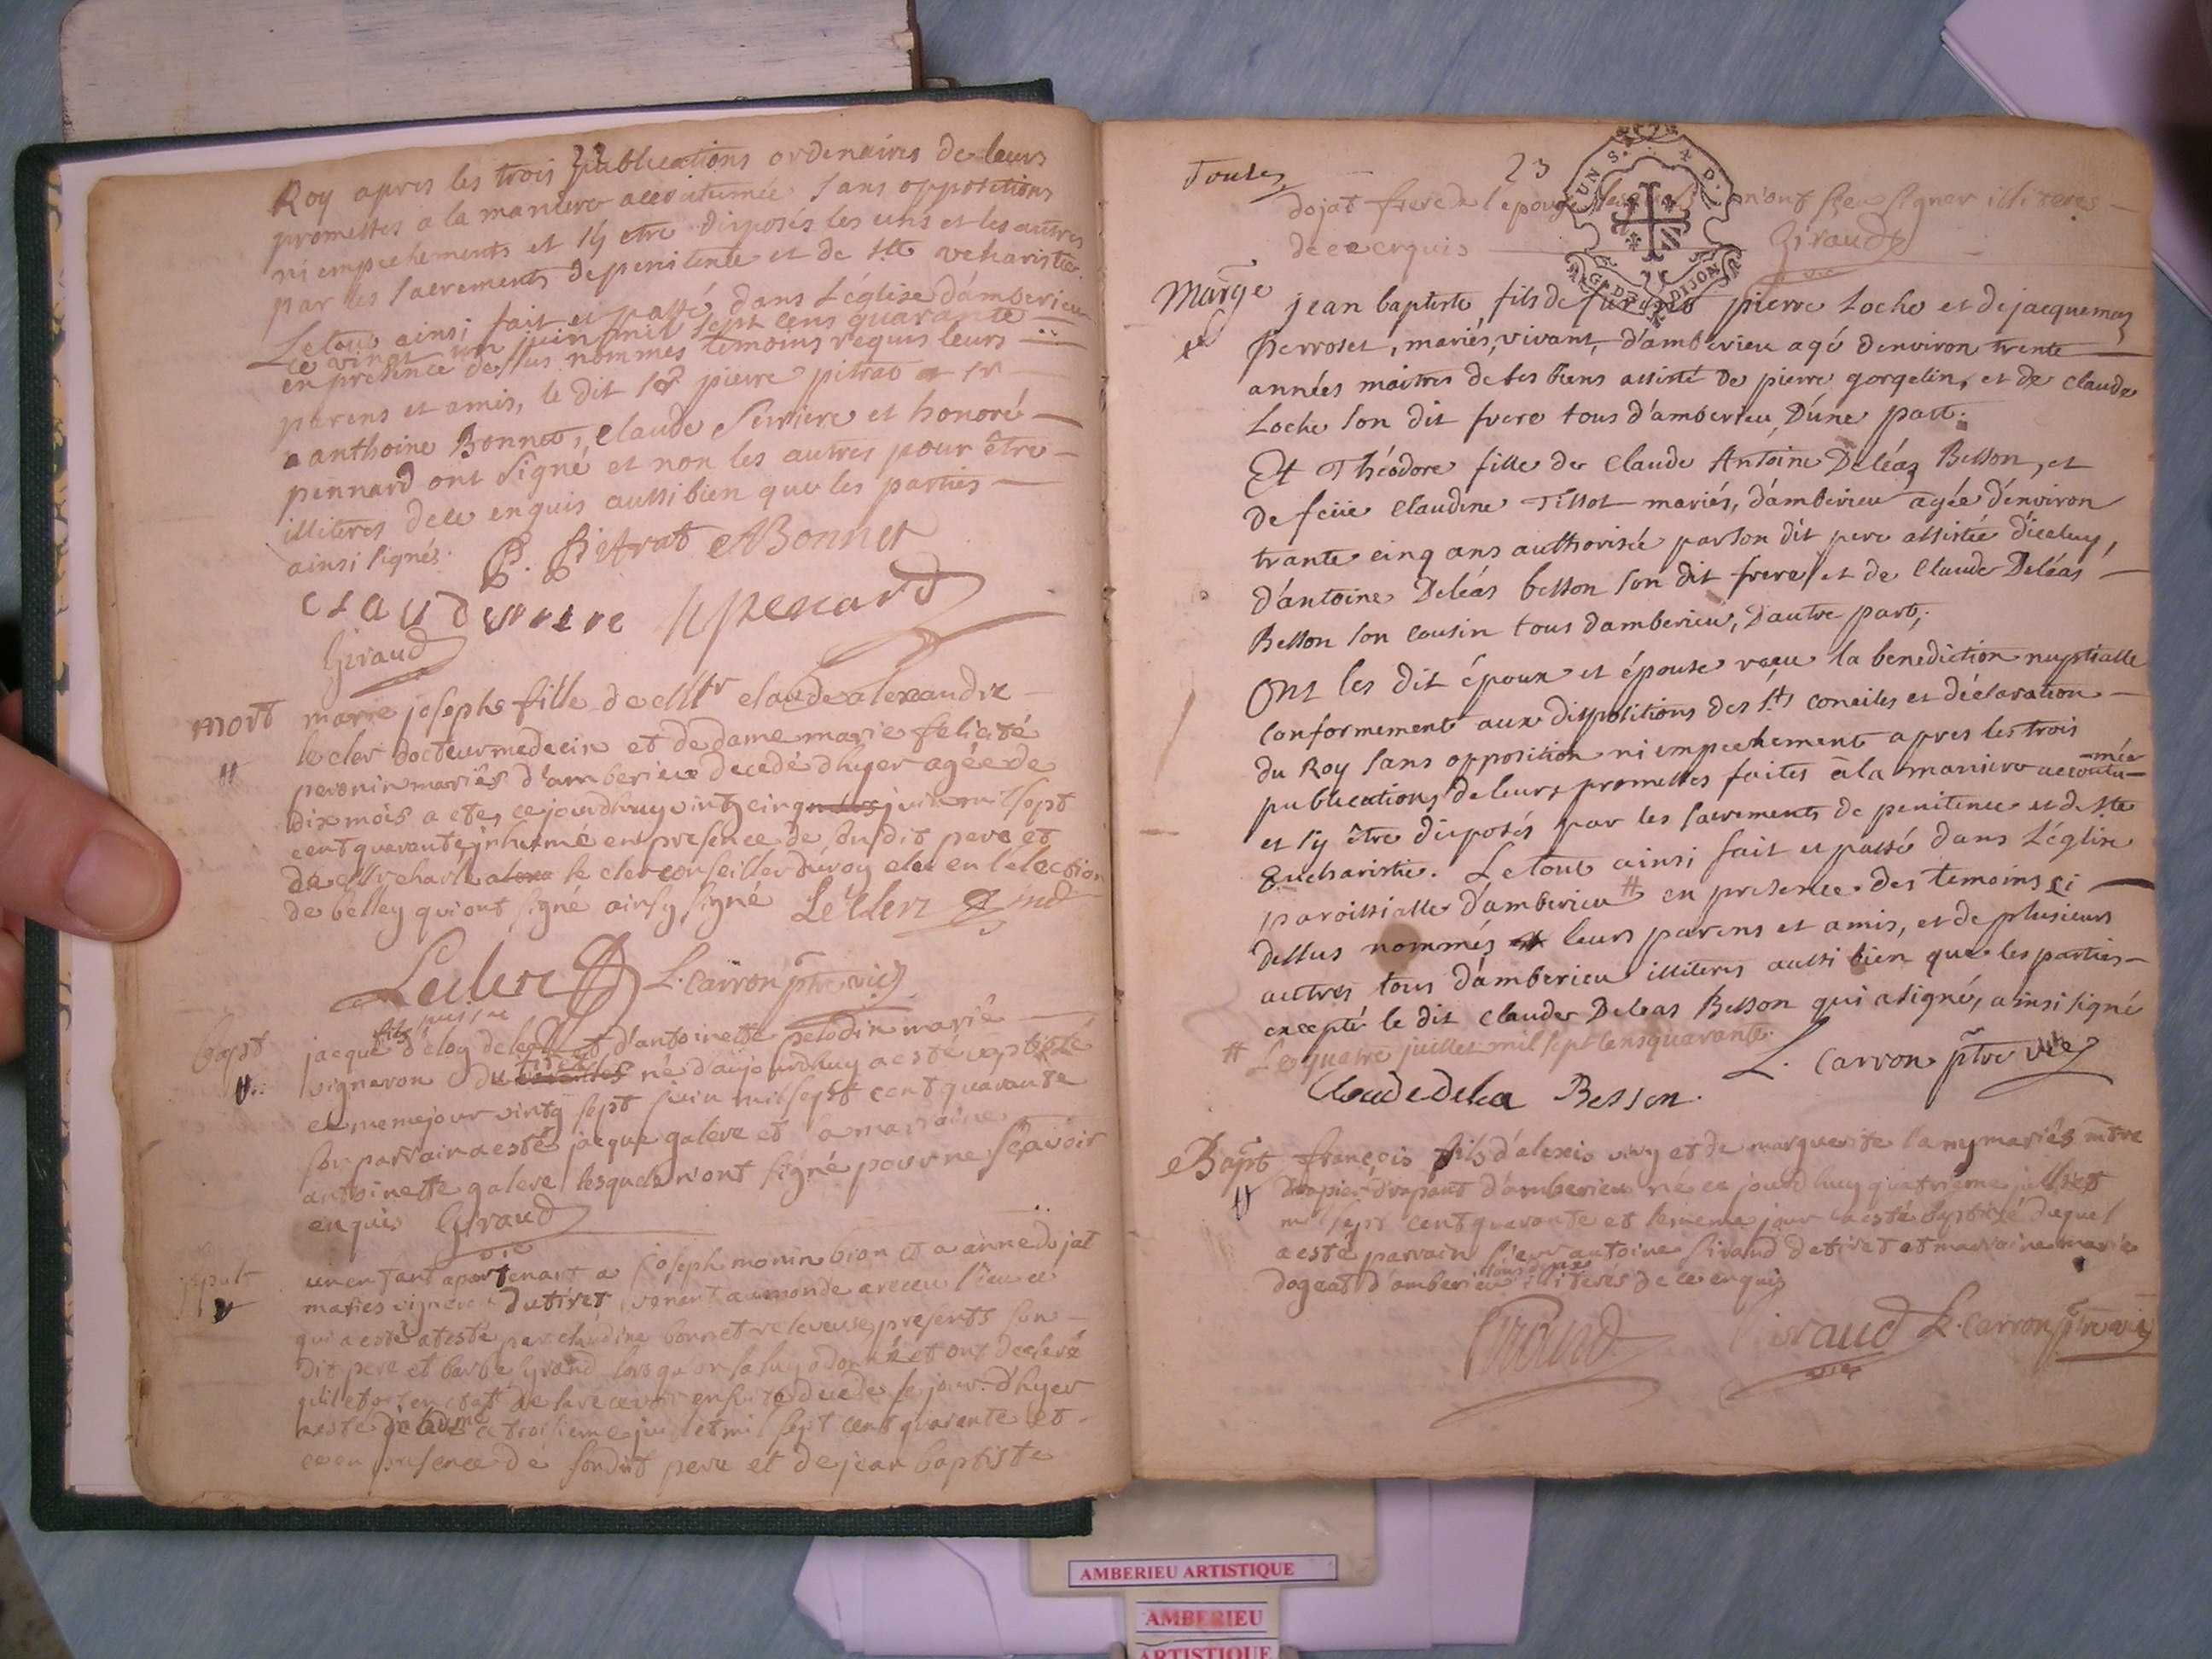 Roy apres les trois publications ordinaires de leurs
promesses a la maniere accoutumée sans oppositions
ni empechements et s'y etre disposés les uns et les autres
par les sacrements de penitence et de ste veharistie.
Le tous ainsi fait et passé dans L'église d'amberieu
ce vingt un juin mil sept cens quarante
en presence des sus nommés temoins requis leurs
parens et amis, le dit Sr pierre pitrat et sr
anthoine Bonnet, Claude Serriere et honoré
pennard ont signé et non les autres pour être
illiteres de ce enquis aussi bien que les parties
ainsi signés. P. Pitrat A Bonnet
h penard
Giraud
mort
marie josephe fille de Mr claude alexandre
le cler docteur medecin et de dame marie felicité
peronin mariés d'amberieux decedé d'hyer agée de
dix mois a eté ce jourdhuy vint cinq juin mil sept
cent quarante inhumé en presence de sudit pere et
de Mr charle le cler conseiller du roy eleu en l'election
de belley qui ont signé ainsy signé Le Clerc
Leclerc L. Carron ptre vic
bapt
jacque fils d'eloy et d'antoinette pelodin marié
vigneron du tiret né d'aujourdhuy a esté baptizé
ce meme jour vintg sept juin mil sept cent quarante
son parrain a esté jacque galere et sa marraine
antoinette galere lesquels n'ont signé pour ne sçavoir
enquis Giraud
vic
un enfant apartenant a joseph monin bion et a anne dojat
maries vigneron du tiret venant au monde a receu l'eau
qui a esté atesté par claudine bonnet releveuse presents son
dit pere et barbe lorsqu'on la luy a donné et ont declaré
qu'il etoit en etat de la recevoir ensuite decedé le jour d'hyer
a esté inhumé ce troisieme juillet mil sept cent quarante et
ce en presence de sondit pere et de jean baptiste
Toutes
23
dojat frere de l'epouse lesquels n'ont sceu signer illiteres
de ce enquis Giraud
vic
UN S. 4 D.
G. DE DIJON
Marige
jean baptiste, fils de pierre Loche et de jacquemaz
Perroset, mariés, vivant, d'amberieu agé d'environ trente
années maitres de ses biens assisté de pierre gorgelin, et de claude
Loche son dit frere tous d'amberieu, D'une part.
Et Théodore fille de Claude Antoine Deléaz Besson, et
de feüe Claudine Tissot mariés, d'amberieu agée d'environ
trante cinq ans authorisée par son dit pere assistée d'iceluy,
d'antoine Deléas besson son dit frere et de Claude Deléas
Besson son cousin tous d'amberieu, D'autre part;
Ont les dit époux et épouse reçu la benediction nuptialle
conformement aux dispositions des Sts conciles et déclaration
du Roy sans opposition ni empechement apres les trois
publications de leurs promesses faites à la maniere accoutu-
-mée
et s'y être disposés par les sacrements de penitence et de ste
Eucharistie. Le tout ainsi fait et passé dans L'église
paroissialle d'amberieu # en presence des temoins ci
dessus nommés leurs parens et amis, et de plusieurs
autres tous d'amberieu illiteres aussi bien que les parties
excepté le dit claude Deleas Besson qui a signé, ainsi signé
# Le quatre juillet mil sept cens quarante. L. Carron ptre vic
Claude delea Besson.
Bapt
françois fils d'alexis et de marguerite lamy mariés mtre
drapier drapant d'amberieu né ce jourd'huy quatrieme juillet
mil sept cent quarante et le meme jour a esté baptizé duquel
a esté parrain sieur antoine sirand de tiret et marraine marie
dogeat d'amberieu tous deux illiterés de ce enquis
Sirand Giraud L. Carron ptre vic
vic
AMBERIEU ARTISTIQUE
AMBERIEU
ARTISTIQUE